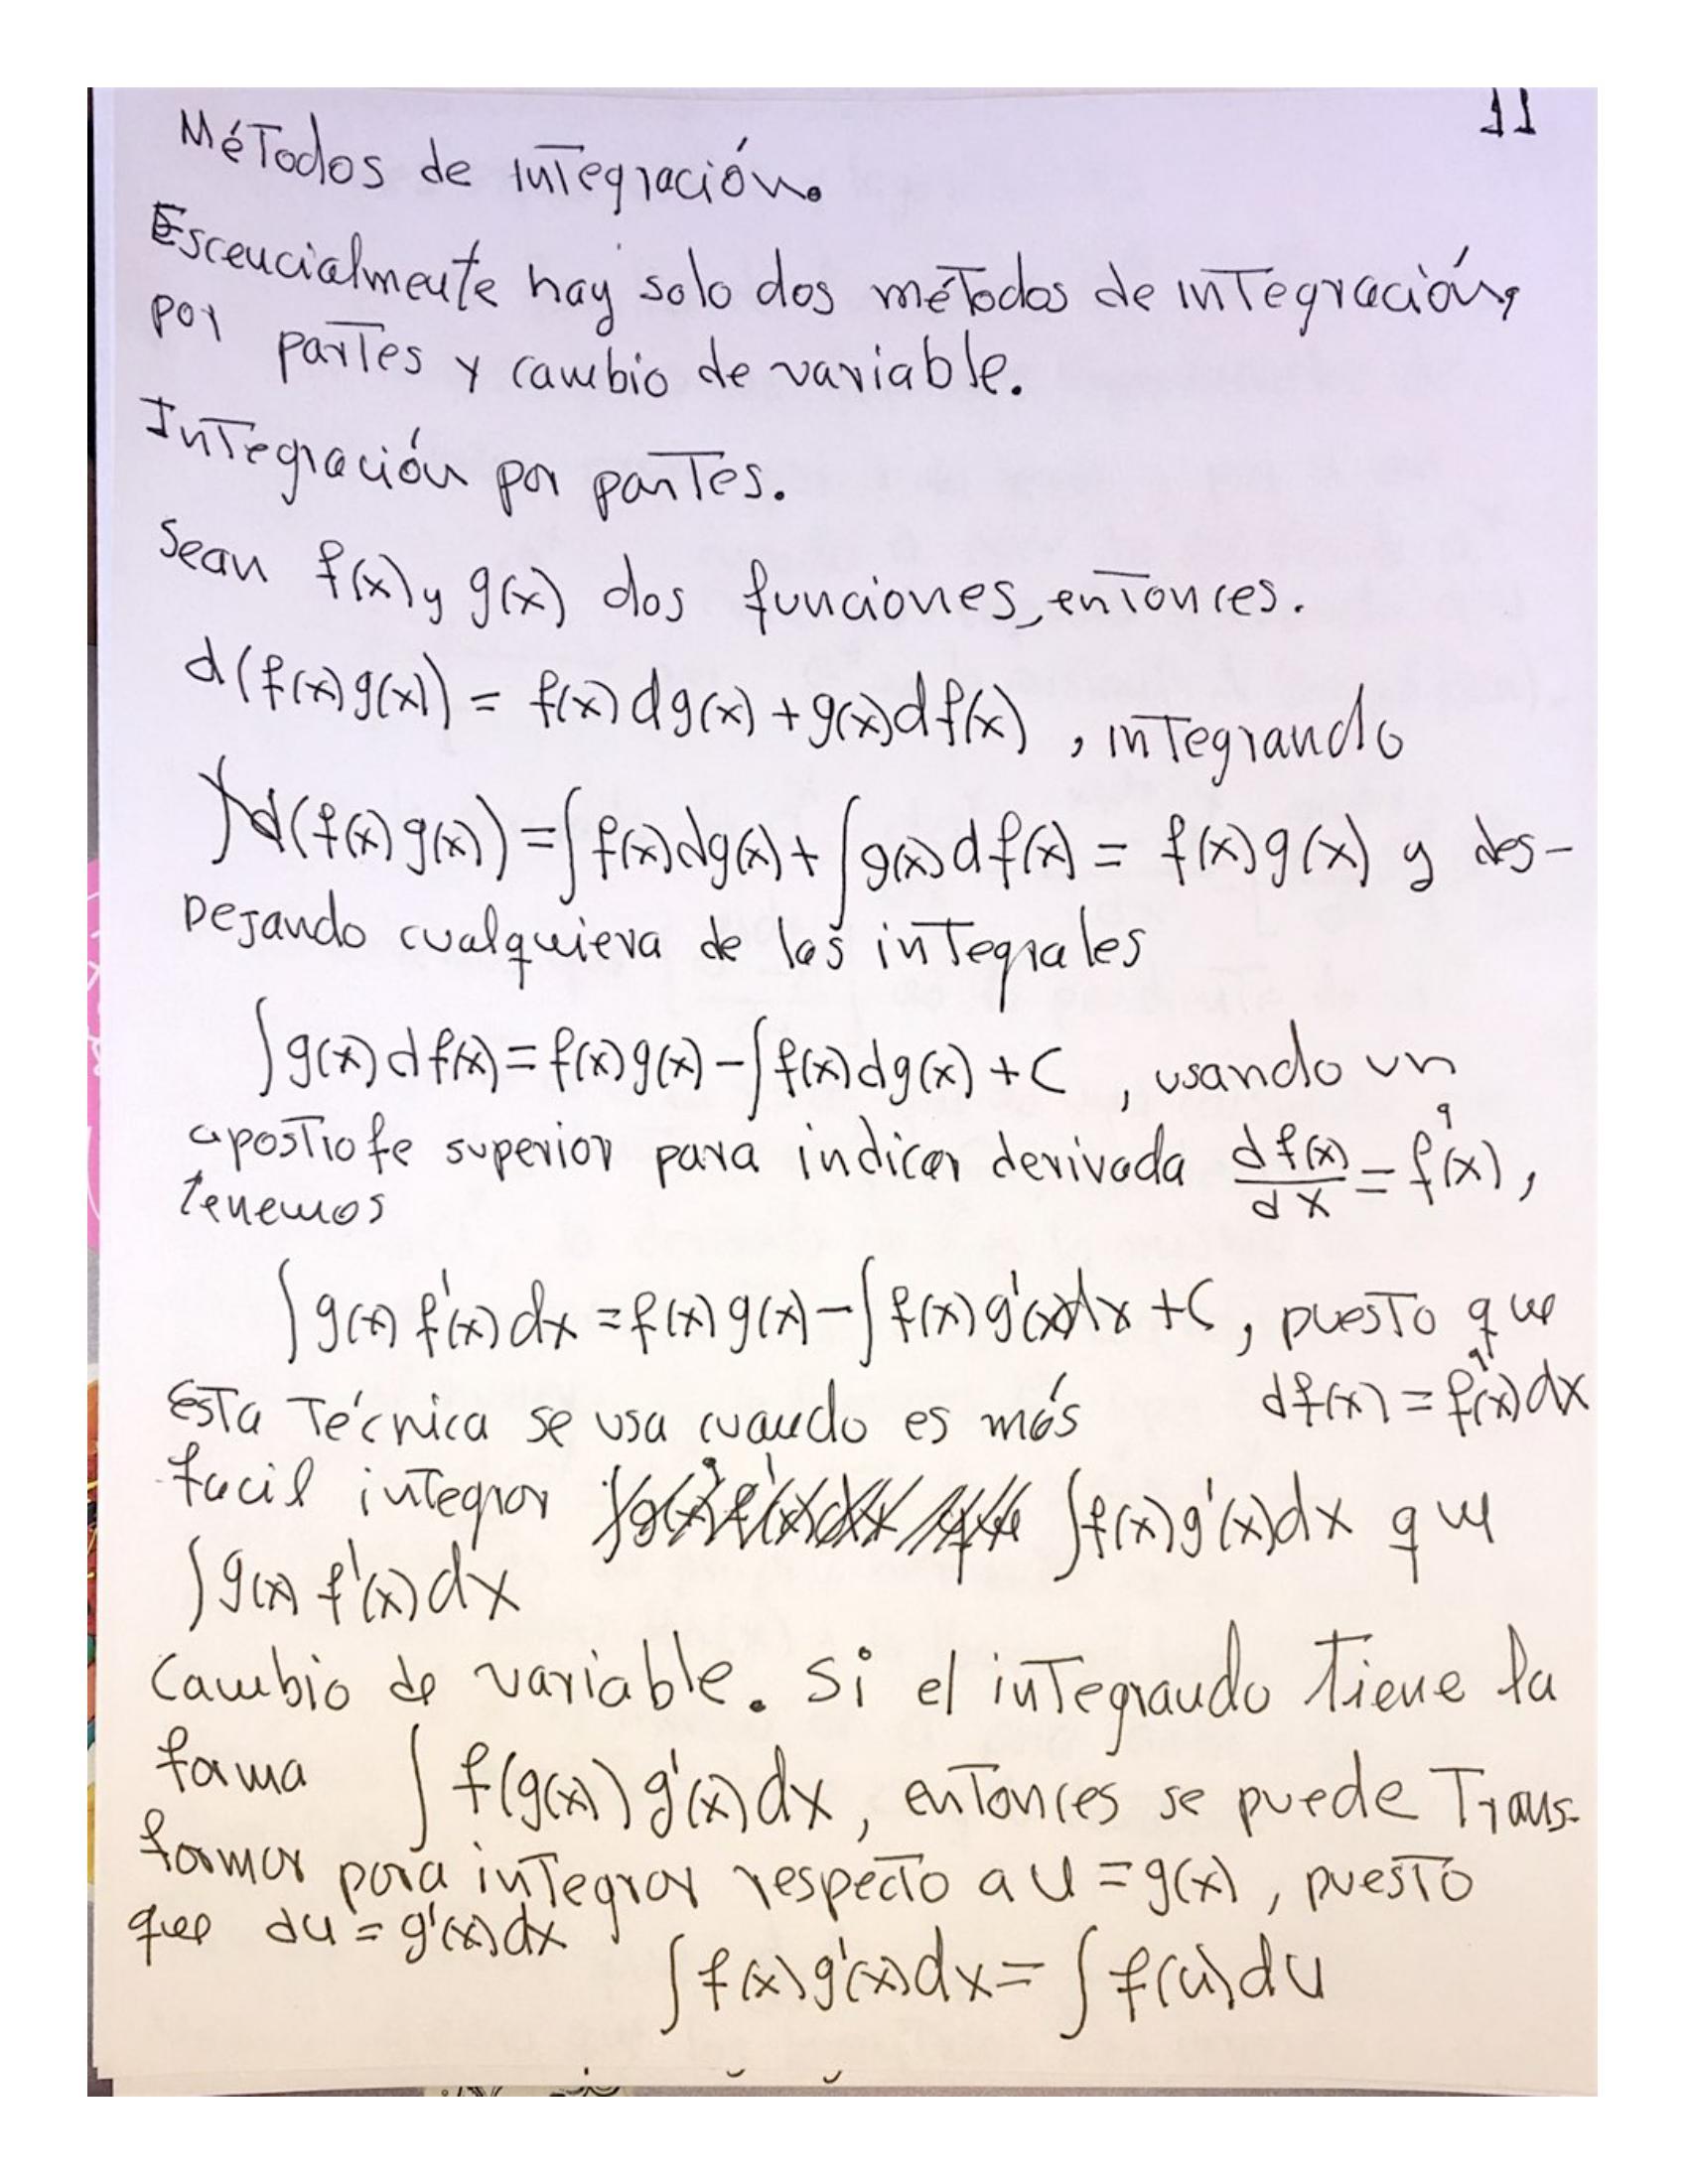 11
Métodos de integración.
Escencialmente hay solo dos métodos de integración,
por partes y cambio de variable.
Integración por partes.
Sean f(x) y g(x) dos funciones, entonces.
d(f(x)g(x)) = f(x)dg(x)+g(x)df(x) , integrando
∫d(f(x)g(x))=∫f(x)dg(x)+∫g(x)df(x) = f(x)g(x) y des-
pejando cualquiera de las integrales
∫g(x)df(x)=f(x)g(x)-∫f(x)dg(x)+C , usando un
apostrofe superior para indicar derivada df(x)/dx = f'(x),
tenemos
∫g(x)f'(x)dx=f(x)g(x)-∫f(x)g'(x)dx+C, puesto que
df(x)=f'(x)dx
Esta técnica se usa cuando es más
facil integrar ∫f(x)g'(x)dx que
∫g(x)f'(x)dx
Cambio de variable. Si el integrando tiene la
forma ∫f(g(x))g'(x)dx, entonces se puede Trans-
formar para integrar respecto a U=g(x), puesto
que du=g'(x)dx
∫f(x)g'(x)dx=∫f(u)du